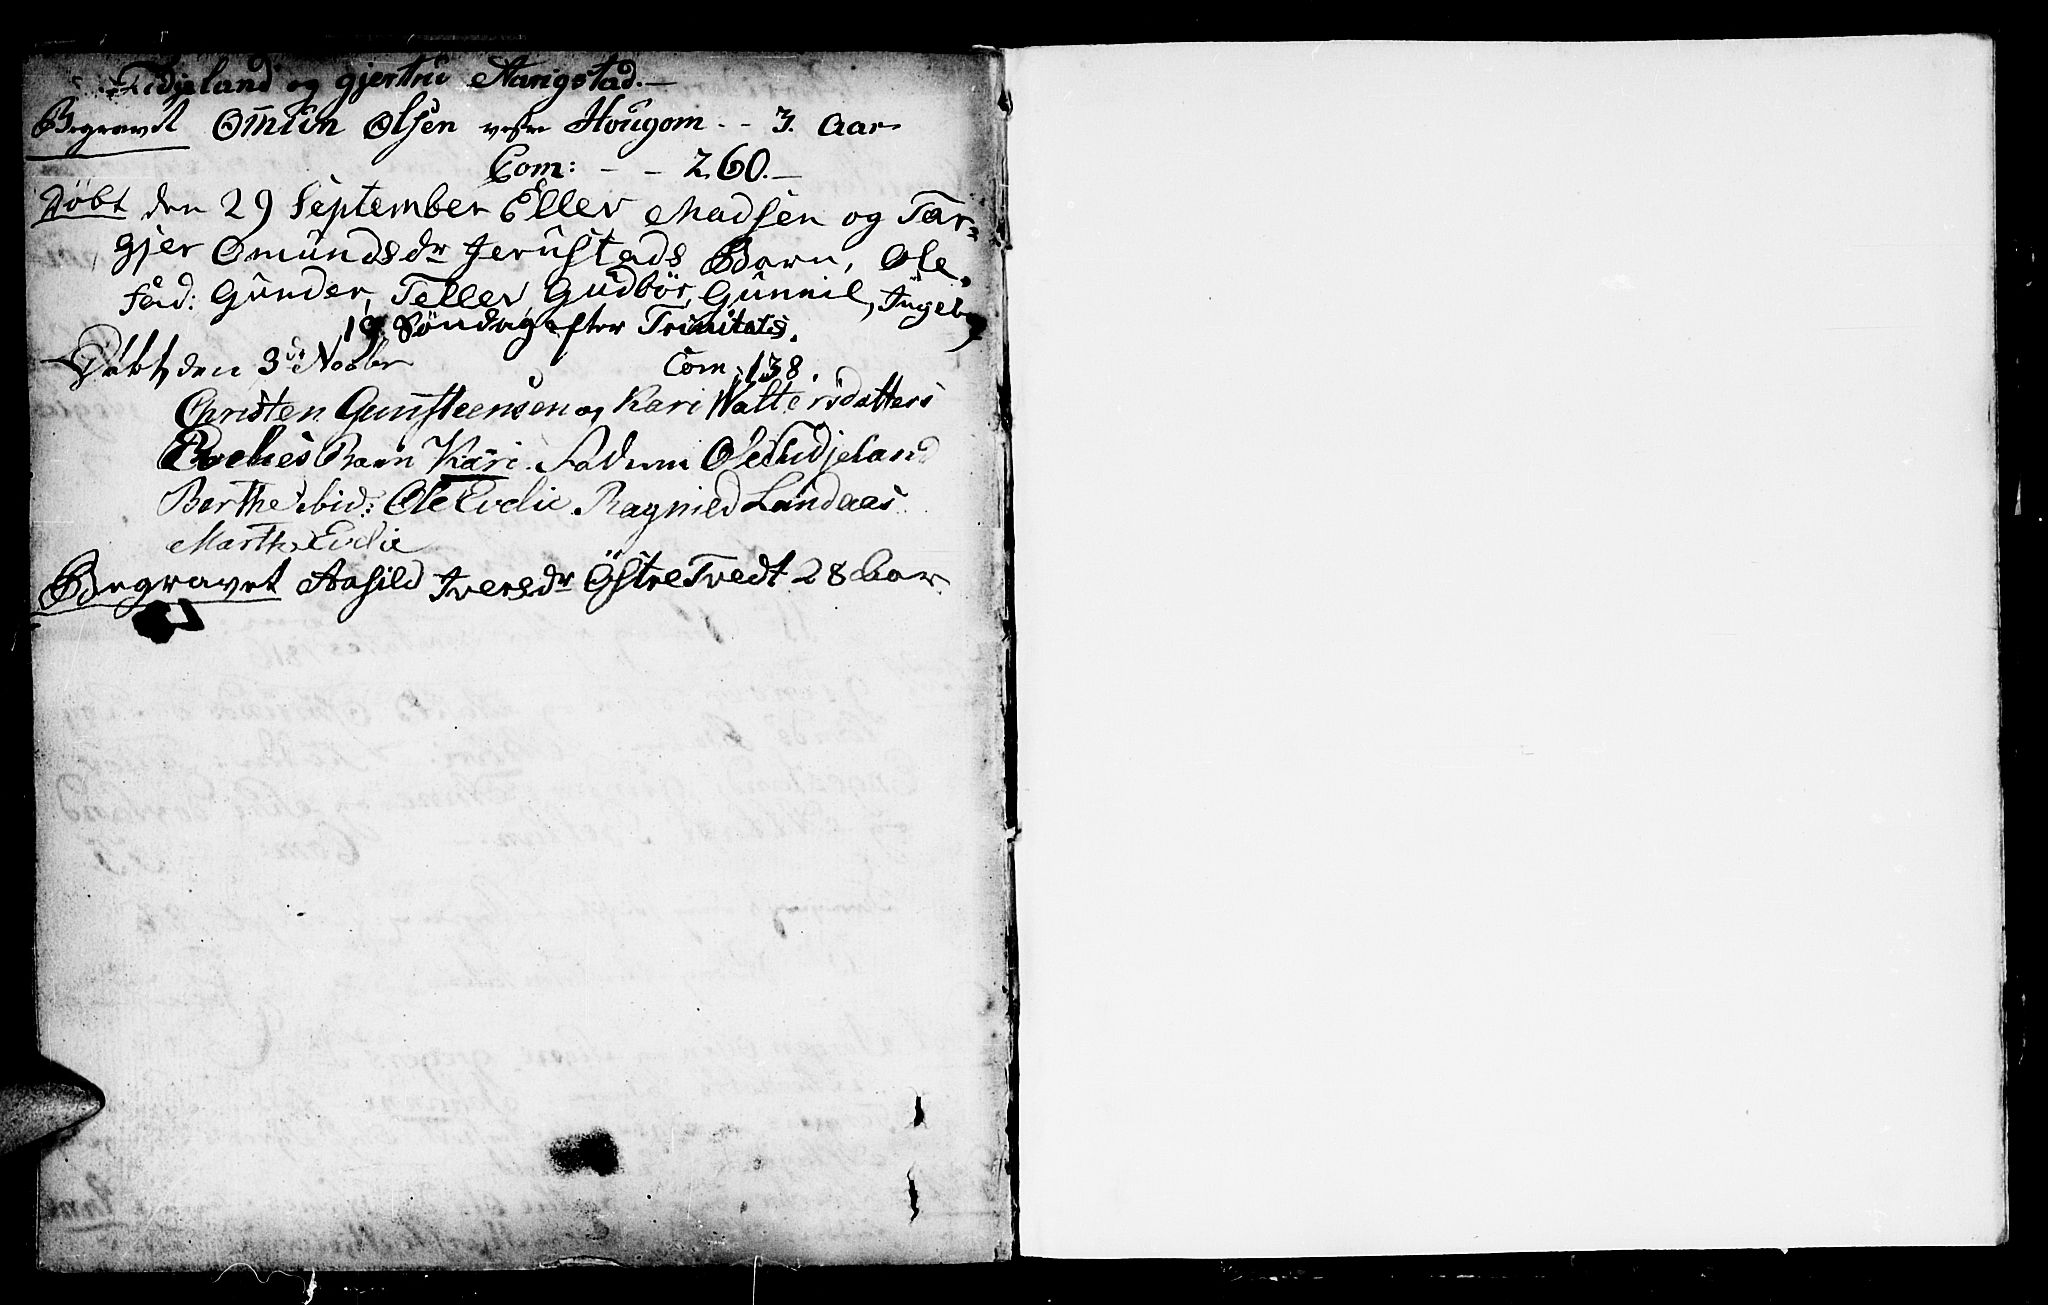 Fidjeland og Gjertru Aarigstad. –
Begravet Omun Olsen Hougom - - 3. Aar
Com: - - 260. –
Døbt den 29 September Eller Madsen og Tar-
gjer Omundsdr Jerustads Barn, Ole.
Fad: Gunder, Tellev, Gudbör, Gunnil, Ingebor
19 Söndag efter Trinitatis.
Døbt, den 3de Novbr Com: 138.
Christen Gunsteensen og Kari Waltersdatters
Evelies Barn Kari. Faderne Ole Fidjeland
Berthe ibid: Ole Evelie. Ragnild Landaas
Marthe Evelie
Begravet Aasild Iversdr Östre Tvedt 28 Aar